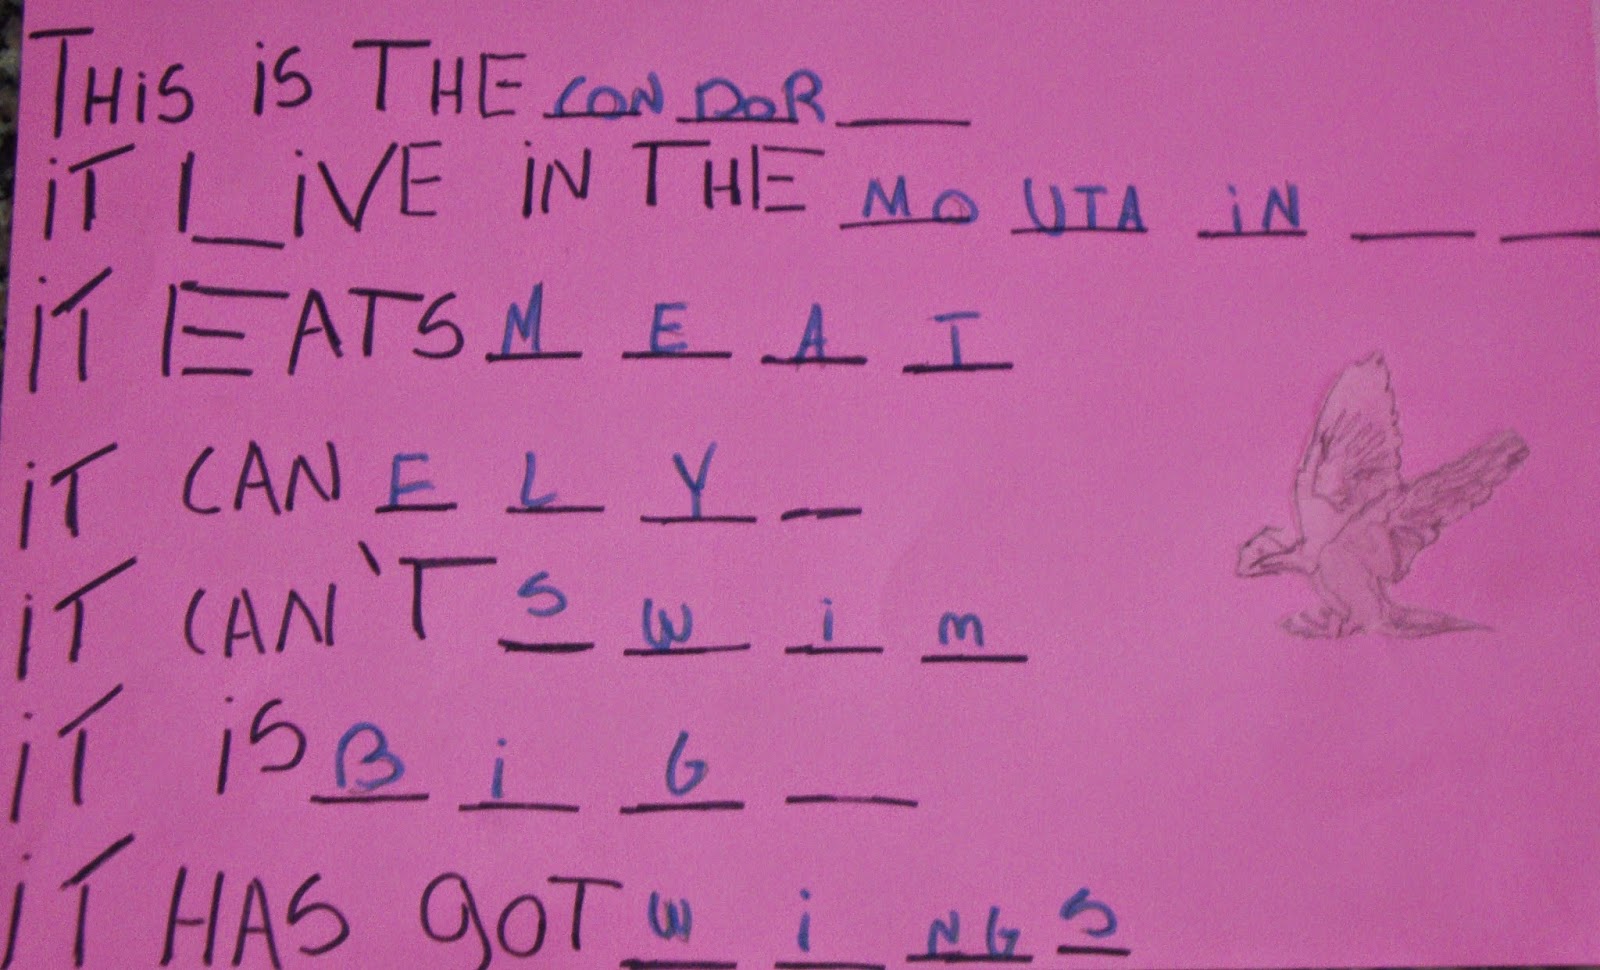 THiS iS THE CON DOR ___
iT LiVE iN THE MO UTA iN ___ ___
iT EATS M E A T
iT CAN F L Y _
iT CAN'T S W i m
iT iS B i G ___
iT HAS GOT W i NG S